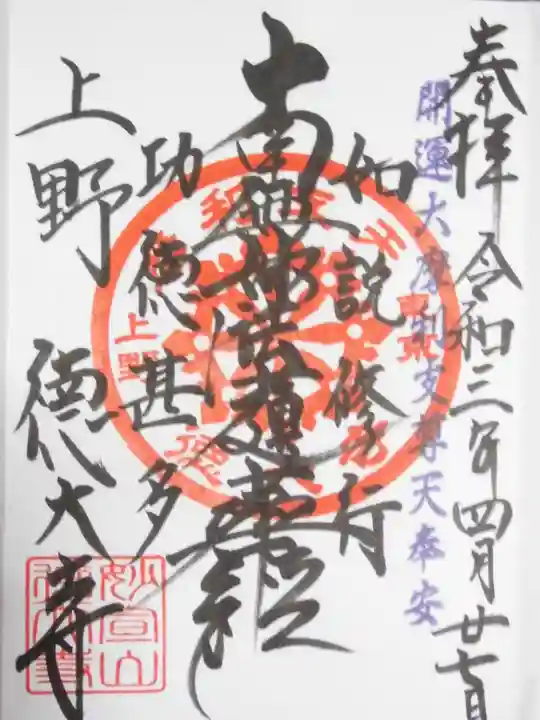 奉拝 令和三年四月廿七日
開運大摩利支尊天奉安
如説修行
南無妙法蓮華経
功徳甚多
上野 徳大寺
東京
上野
妙宣山
徳大寺